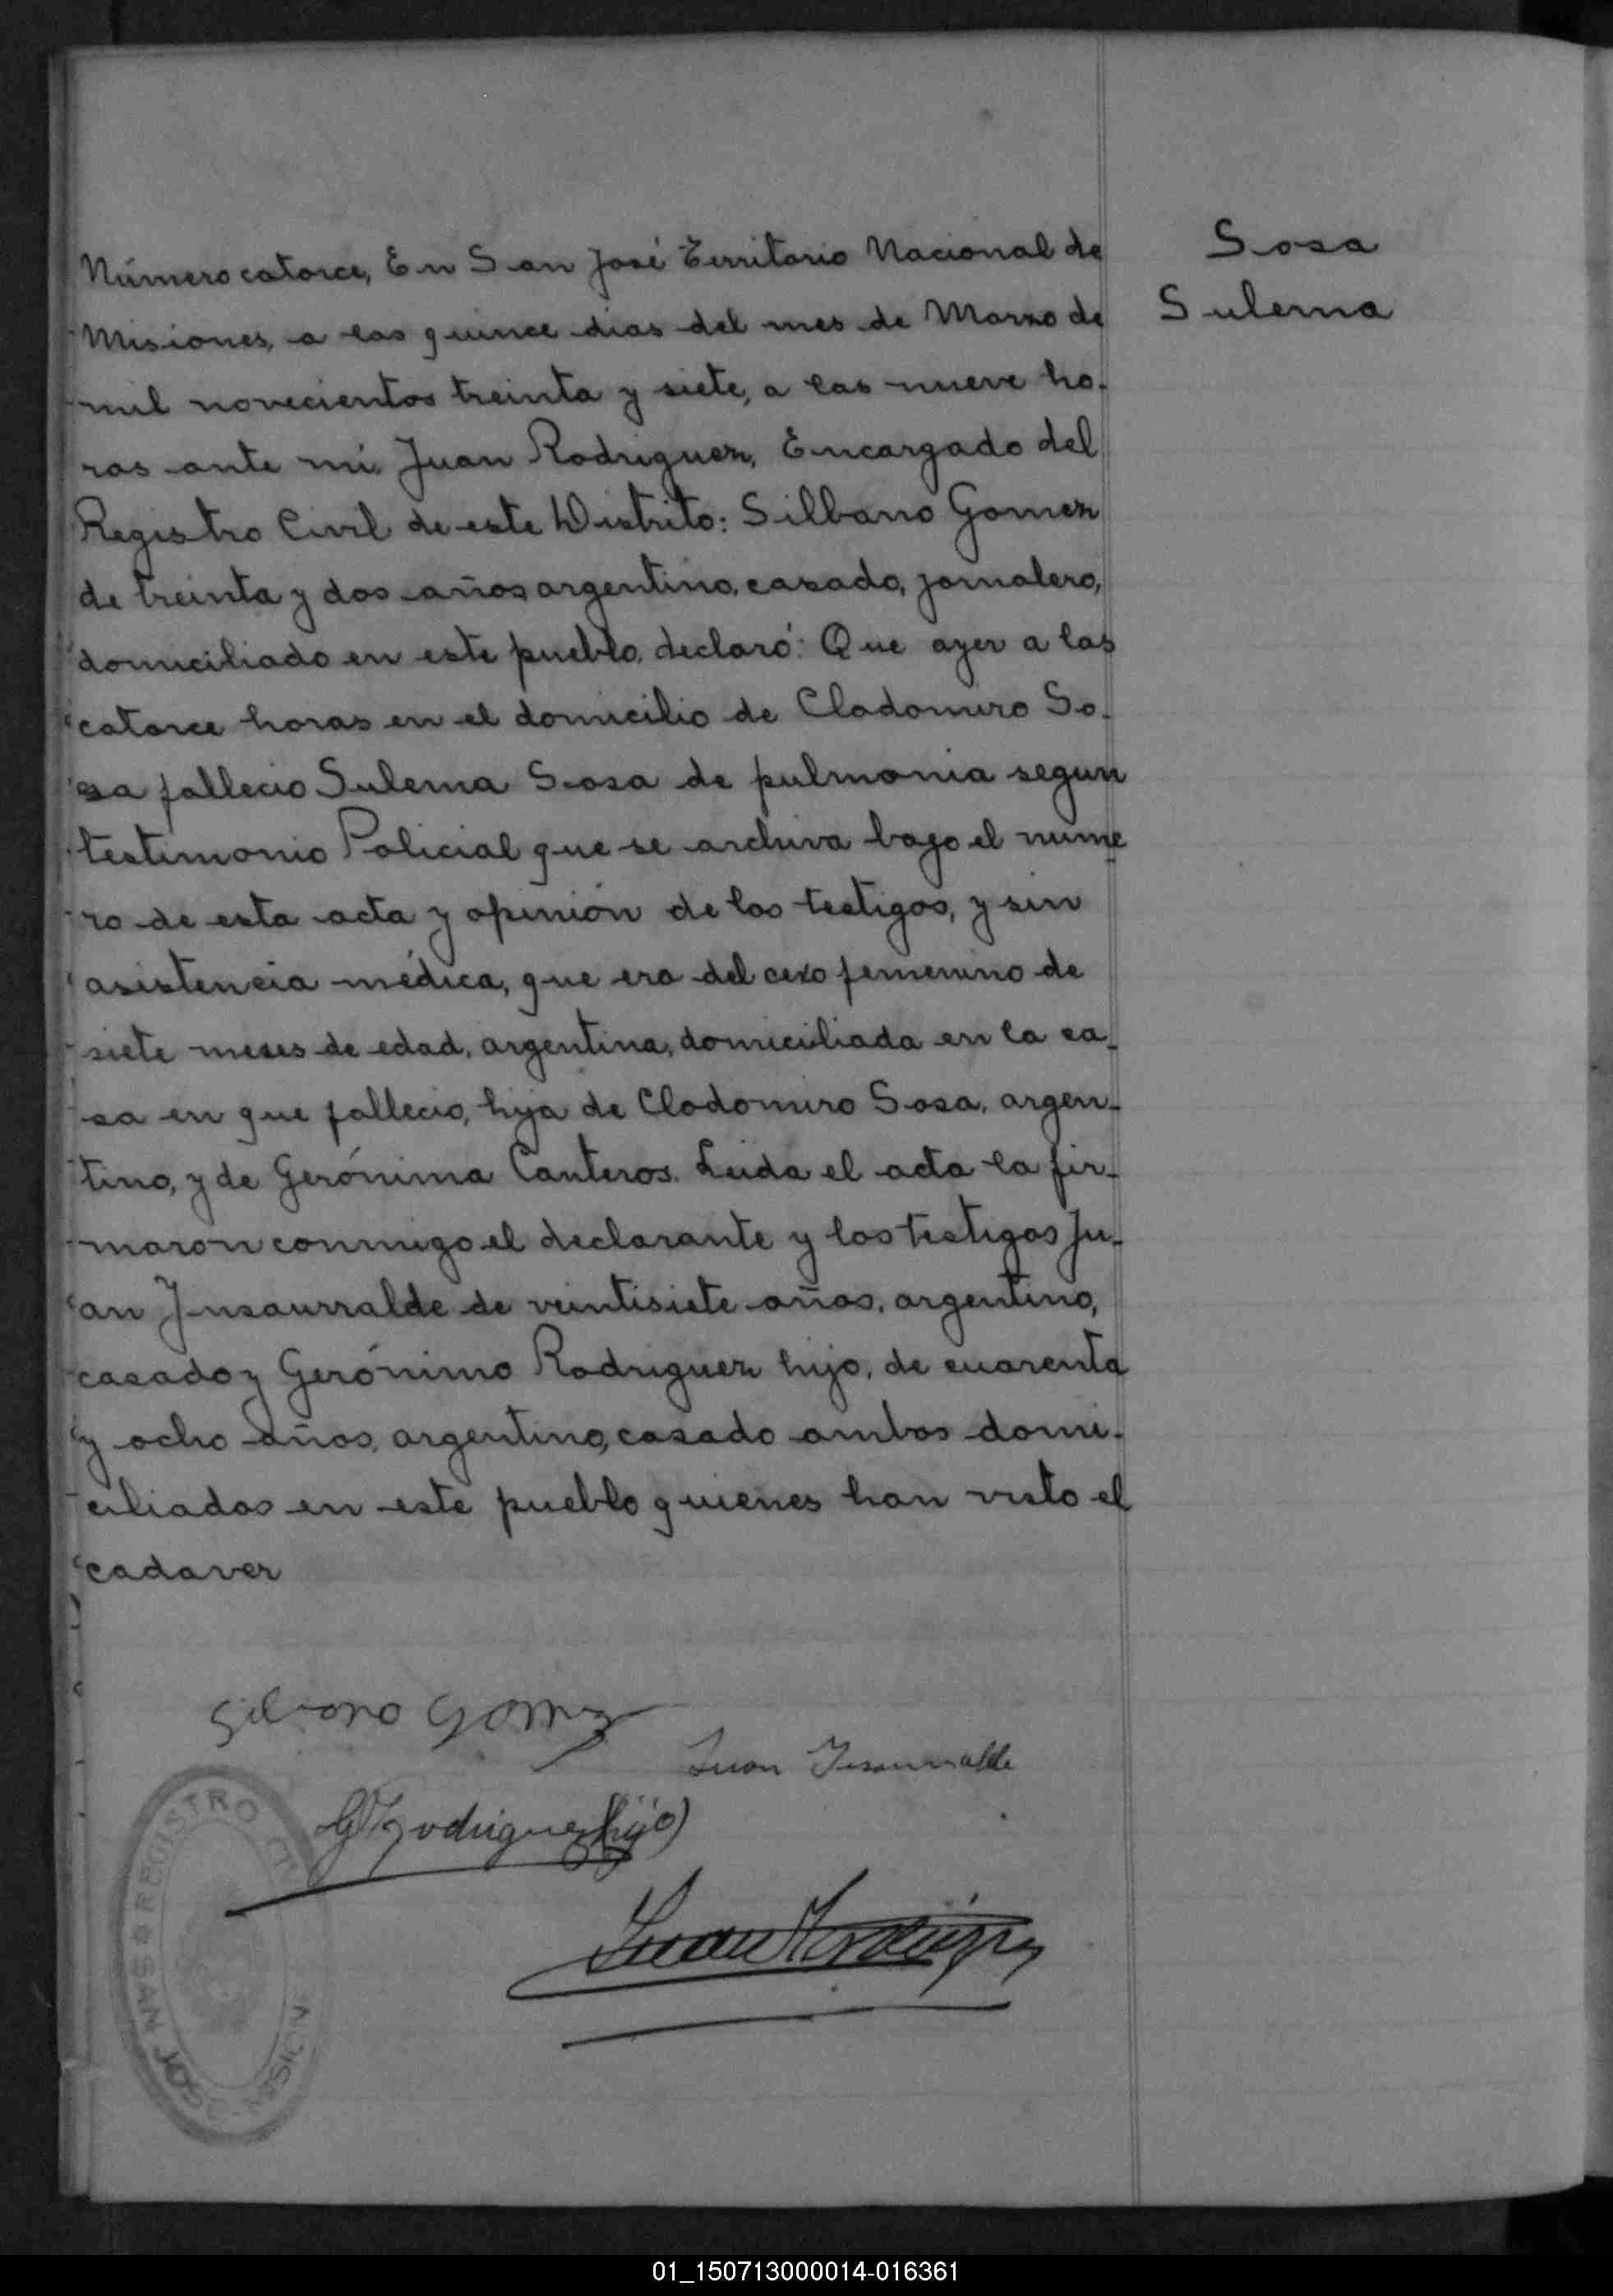 Sosa
Sulema
Número catorce, En San José Territorio Nacional de
Misiones, a los quince dias del mes de Marzo de
mil novecientos treinta y siete, a las nueve ho-
ras ante mi, Juan Rodriguez, Encargado del
Registro Civil de este Distrito: Silbano Gomez
de treinta y dos años argentino, casado, jornalero,
domiciliado en este pueblo, declaró: Que ayer a las
catorce horas en el domicilio de Clodomiro So-
sa fallecio Sulema Sosa de pulmonia segun
testimonio Policial que se archiva bajo el nume
ro de esta acta y opinión de los testigos, y sin
asistencia médica, que era del cexo femenino de
siete meses de edad, argentina, domiciliada en la ca-
sa en que fallecio, hija de Clodomiro Sosa, argen-
tino, y de Gerónima Canteros. Leida el acta la fir-
maron conmigo el declarante y los testigos Ju-
an Insaurralde de veintisiete años, argentino,
casado y Gerónimo Rodriguez hijo, de cuarenta
y ocho años, argentino, casado ambos domi-
ciliados en este pueblo quienes han visto el
cadaver
Silvano Gomez
Juan Insaurralde
G Rodriguez (hijo)
Juan Rodriguez
REGISTRO CIVIL
SAN JOSE - MISIONES
01_150713000014-016361